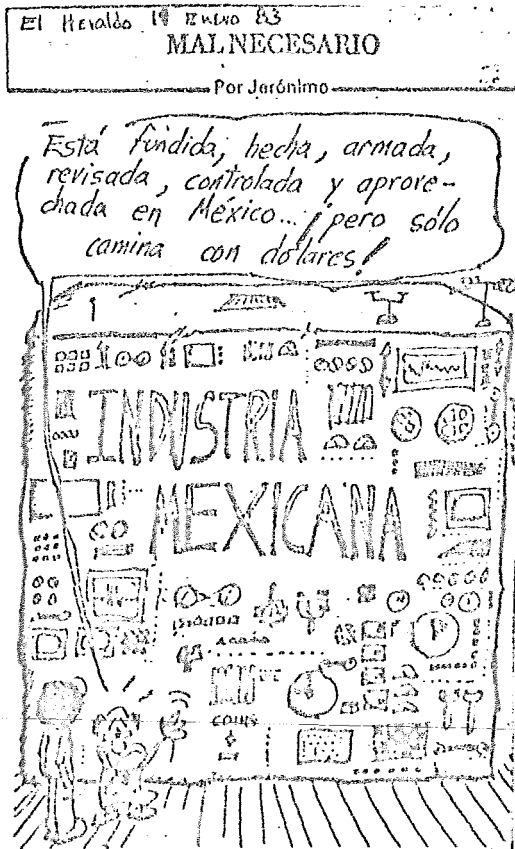 El Heraldo 19 Enero 83
MAL NECESARIO
Por Jerónimo
Está fundida, hecha, armada,
revisada, controlada y aprove-
chada en México... ¡pero sólo
camina con dólares!
INDUSTRIA
MEXICANA